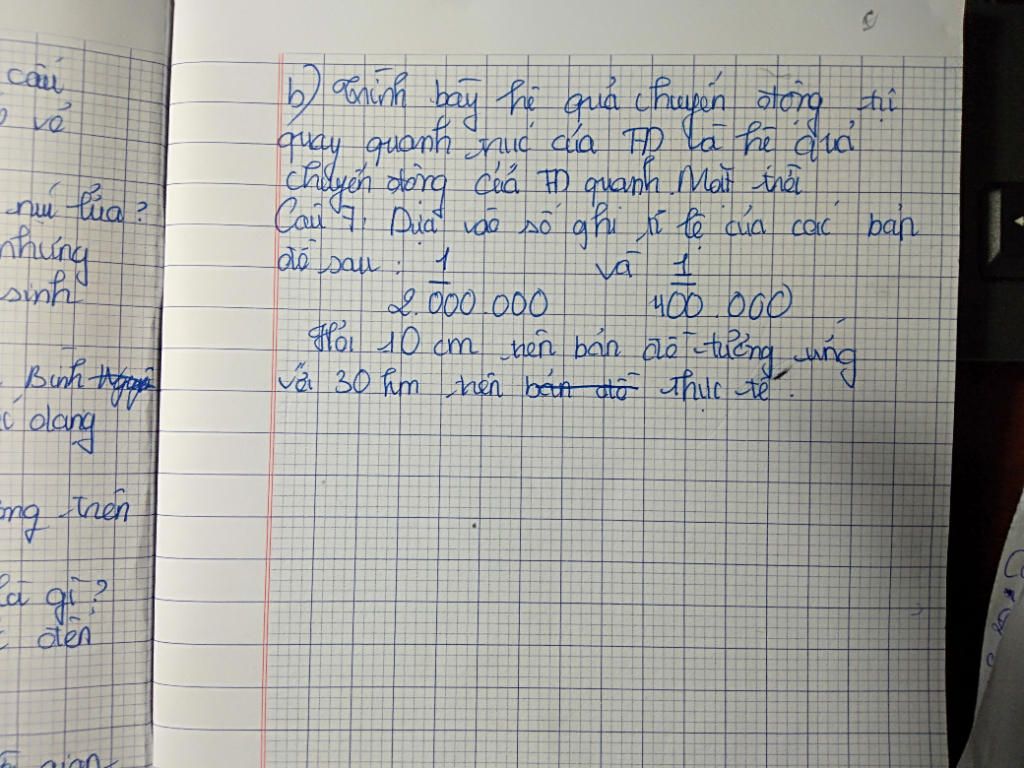 cấu
vẽ
núi lửa?
những
sinh
Bình
dạng
trên
Là gì?
đến
b) Trình bày hệ quả chuyển động tự
quay quanh trục của TĐ Là hệ quả
chuyển động của TĐ quanh Mặt trời
Câu 7: Dựa vào số ghi tỉ lệ của các bản
đồ sau: 1/2.000.000 và 1/400.000
Hỏi 10 cm trên bản đồ tương ứng
với 30 km trên bản đồ thực tế.